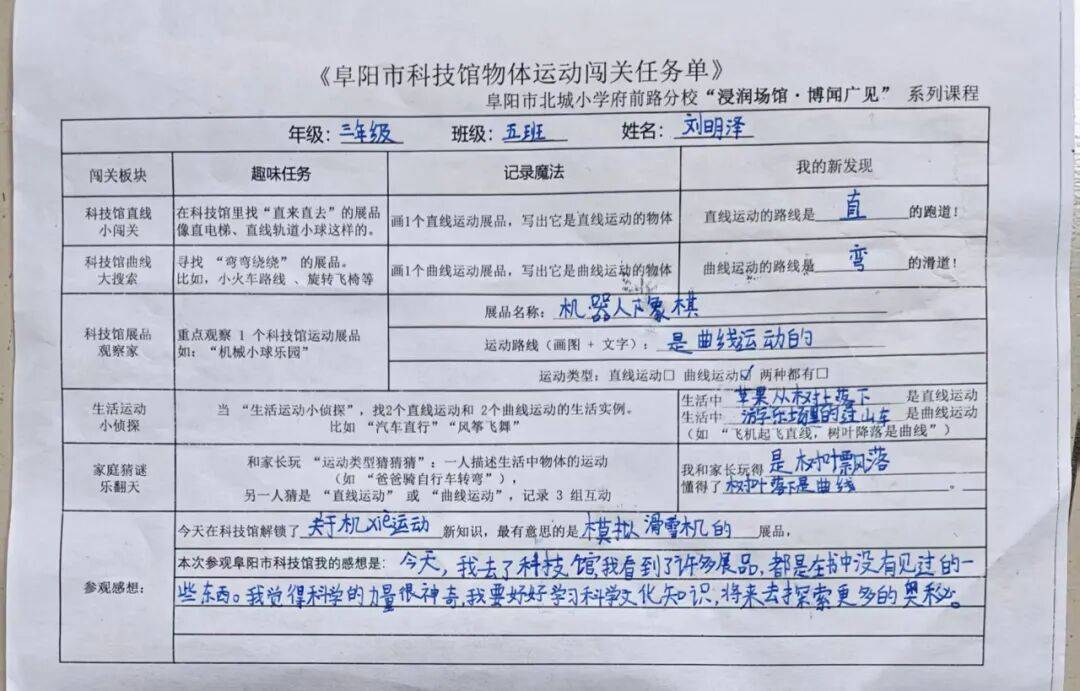 《阜阳市科技馆物体运动闯关任务单》
阜阳市北城小学府前路分校“浸润场馆·博闻广见” 系列课程
年级：三年级 班级：五班 姓名：刘明泽
闯关板块 趣味任务 记录魔法 我的新发现
科技馆直线
小闯关
在科技馆里找“直来直去”的展品
像直电梯、直线轨道小球这样的。
画1个直线运动展品，写出它是直线运动的物体
直线运动的路线是 直 的跑道！
科技馆曲线
大搜索
寻找 “弯弯绕绕” 的展品。
比如，小火车路线 、旋转飞椅等
画1个曲线运动展品，写出它是曲线运动的物体
曲线运动的路线是 弯 的滑道！
科技馆展品
观察家
重点观察 1 个科技馆运动展品
如：“机械小球乐园”
展品名称：机器人下象棋
运动路线（画图 + 文字）：是曲线运动的
运动类型：直线运动□ 曲线运动☑ 两种都有□
生活运动
小侦探
当 “生活运动小侦探”，找2个直线运动和 2个曲线运动的生活实例。
比如 “汽车直行” “风筝飞舞”
生活中 苹果从树上落下 是直线运动
生活中 游乐场里的过山车 是曲线运动
（如 “飞机起飞直线，树叶降落是曲线”）
家庭猜谜
乐翻天
和家长玩 “运动类型猜猜猜”：一人描述生活中物体的运动
（如 “爸爸骑自行车转弯”），
另一人猜是 “直线运动” 或 “曲线运动”，记录 3 组互动
我和家长玩得 是树叶飘落
懂得了 树叶落下是曲线 。
参观感想：
今天在科技馆解锁了 关于机xie运动 新知识，最有意思的是 模拟滑雪机的 展品，
本次参观阜阳市科技馆我的感想是：今天，我去了科技馆,我看到了许多展品，都是在书中没有见过的一
些东西。我觉得科学的力量很神奇，我要好好学习科学文化知识，将来去探索更多的奥秘。